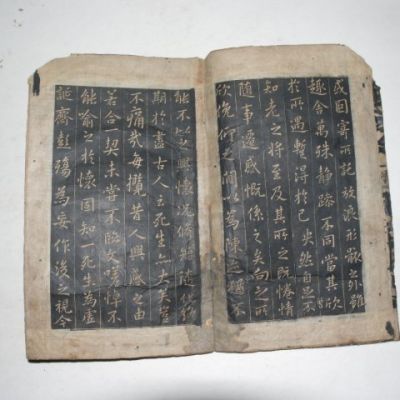 或因寄所託放浪形骸之外雖
趣舍萬殊静躁不同當其欣
於所遇暫得於己怏然自足不
知老之將至及其所之既惓情
隨事遷感慨係之矣向之所
欣俛仰之間以為陳迹猶不
能不以之興懷況脩短隨化終
期於盡古人云死生亦大矣豈
不痛哉每攬昔人興感之由
若合一契未嘗不臨文嗟悼不
能喻之於懷固知一死生為虛
誕齊彭殤為妄作後之視今